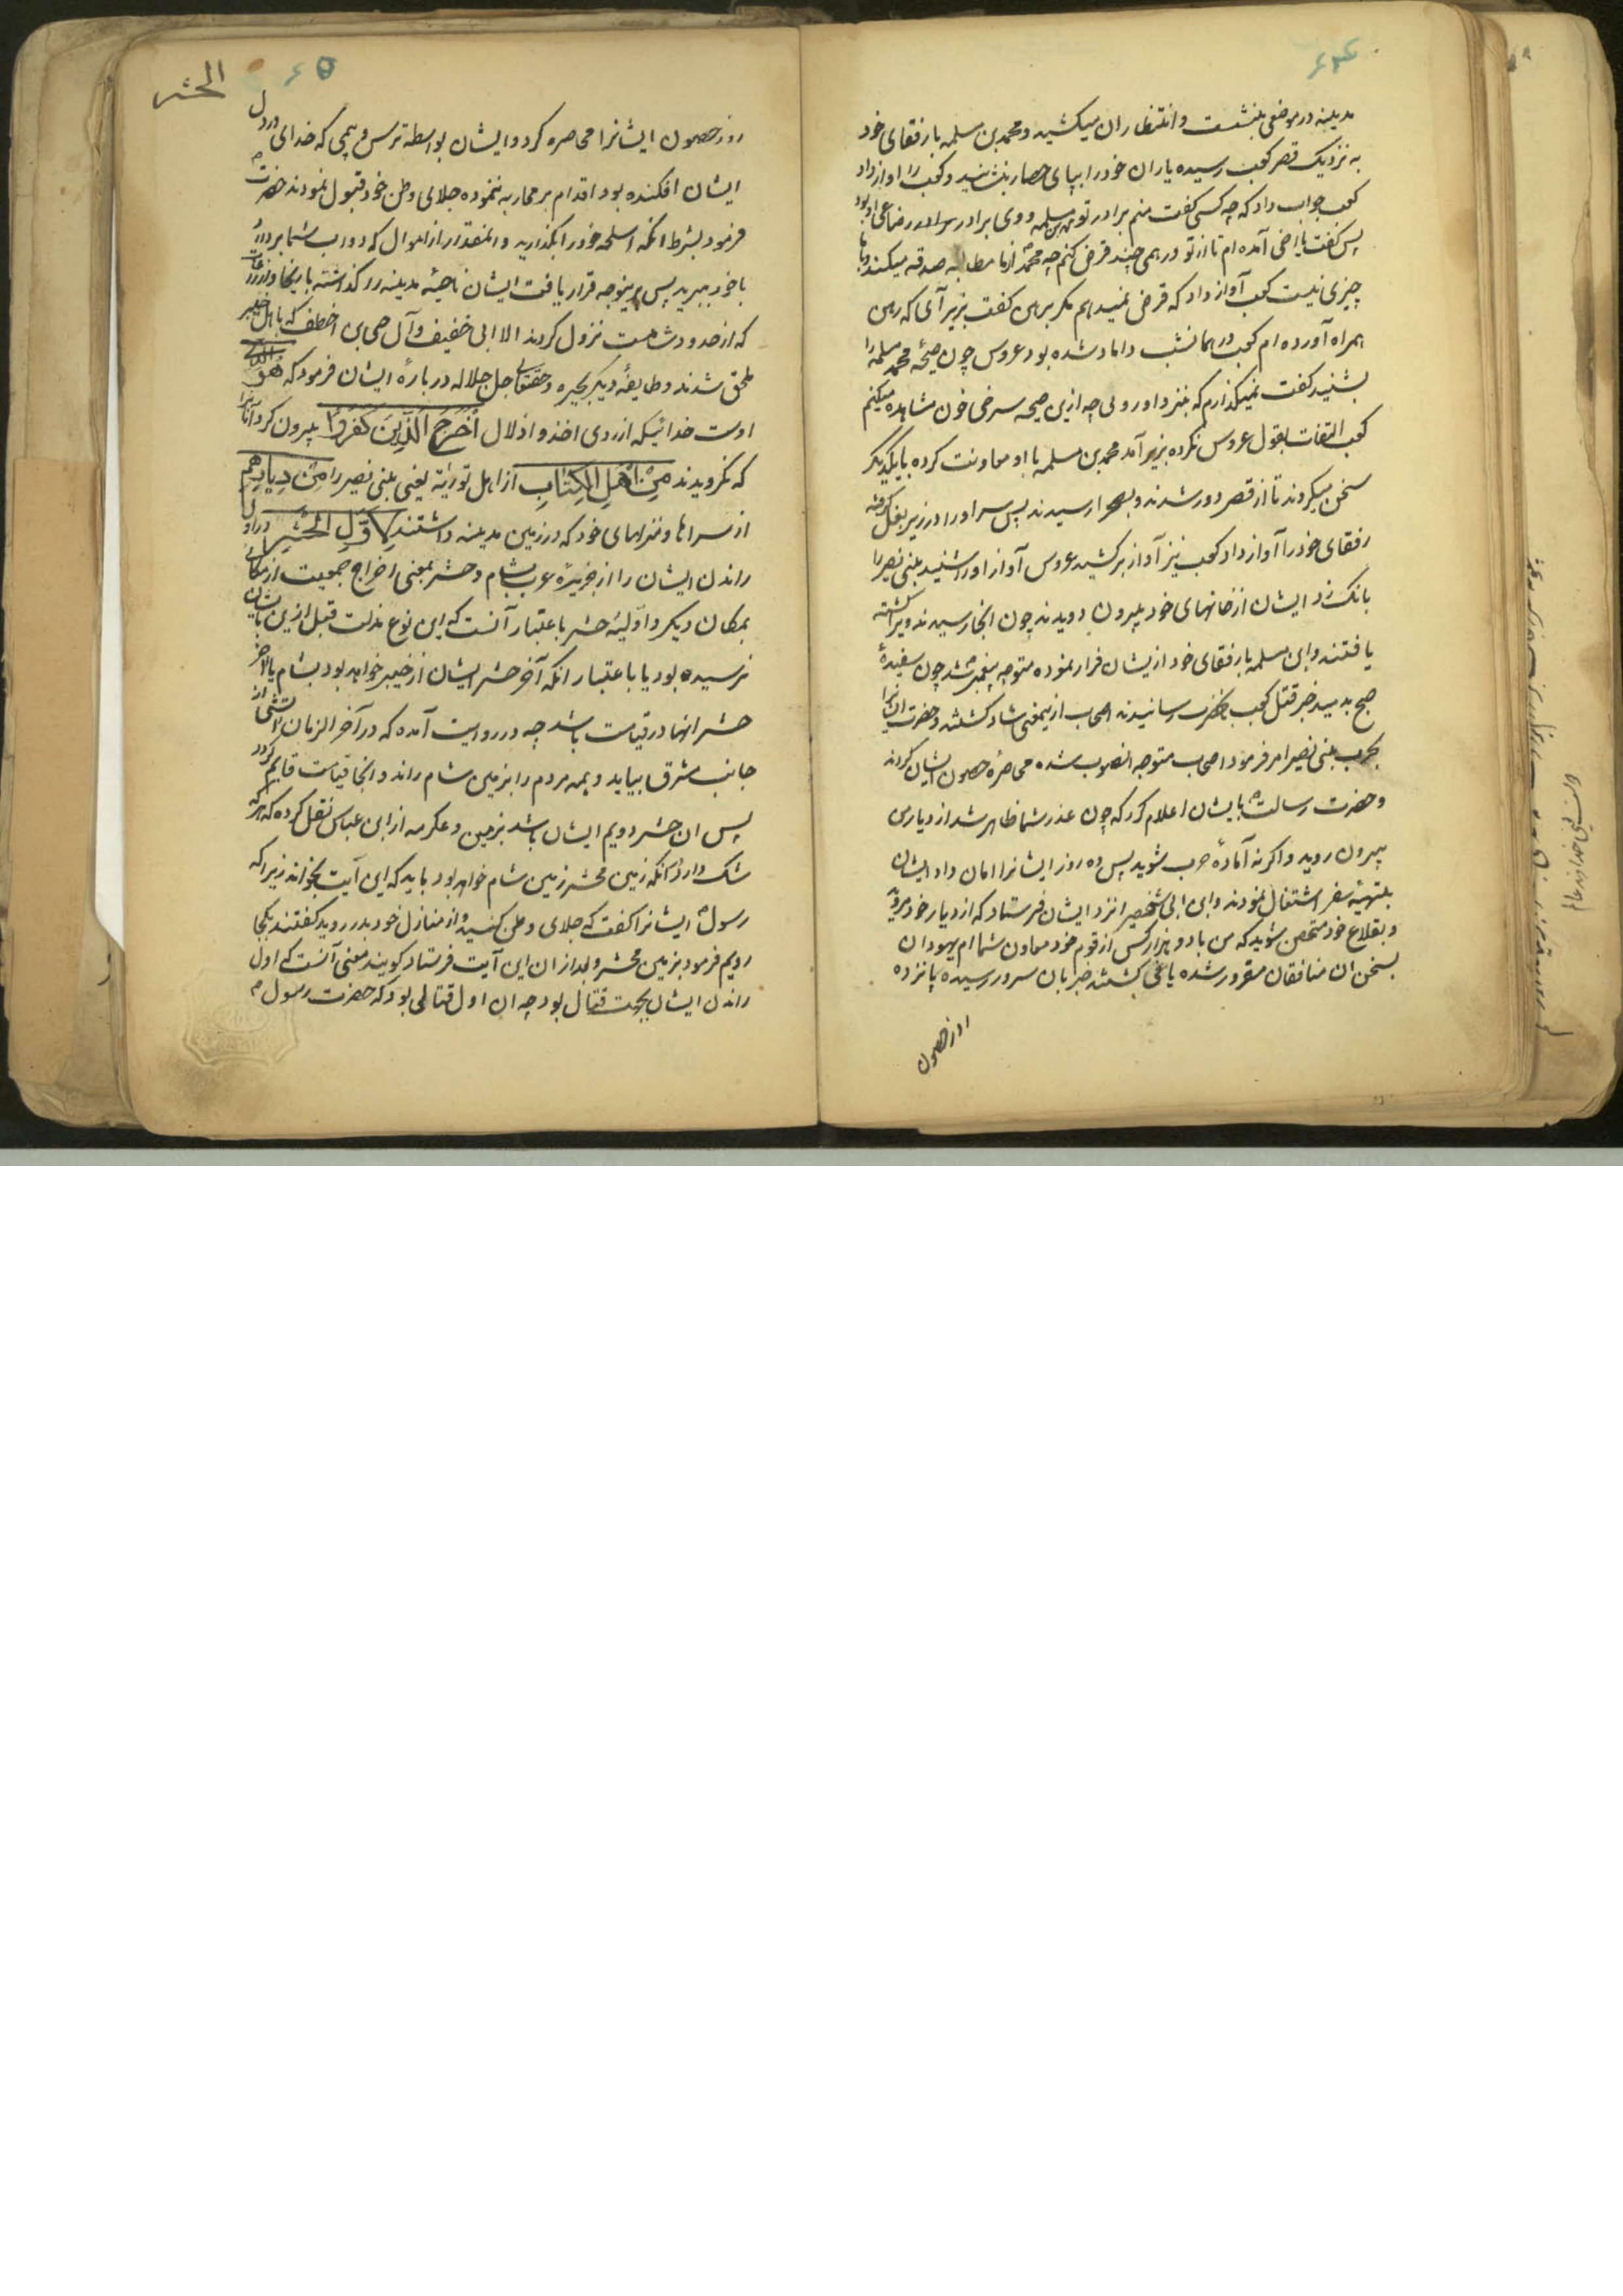 ۶۴
مدینه در موضعی بنشست و انتظار ان میکشید و محمد بن مسلمه با رفقای خود
به نزدیک قصر کعب رسیده یاران خود را بپای حصار بنشانید و کعب را اواز داد
کعب جواب داد که چه کسی کفت منم برادر تو محمد بن مسلمه و وی برادر رضاعی او بود
پس کفت یا اخی آمده ام تا از تو درهمی چند قرض کنم چه محمد از ما مطالبه صدقه میکند و با ما
چیزی نیست کعب آواز داد که قرض نمیدهم مکر برهن کفت بزیر آی که رهن
همراه آورده ام کعب در همانشب داماد شده بود عروس چون صیحهٔ محمد مسلمه را
بشنید کفت نمیکذارم که بنزد او روی چه ازین صیحه سرخی خون مشاهده میکنم
کعب التفات بقول عروس نکرده بزیر آمد محمد بن مسلمه با او معاونت کرده با یکدیکر
سخن میکردند تا از قصر دور شدند و بصحرا رسیدند پس سر او را در زیر بغل کرفته
رفقای خود را آواز داد کعب نیز آواز برکشید عروس آواز او را شنید بنی نضیر را
بانک زد ایشان از خانهای خود بیرون دویدند چون انجا رسیدند ویرا کشته
یافتند و ابن مسلمه با رفقای خود از ایشان فرار نموده متوجه پیغمبر شد چون سفیدهٔ
صبح بدمید خبر قتل کعب بحضرت رسانیدند اصحاب ازینمعنی شاد کشتند و حضرت ایشانرا
بحرب بنی نضیر امر فرمود اصحاب متوجه انصوب شده محاصرهٔ حصون ایشان کردند
و حضرت رسالت بایشان اعلام کرد که چون عذر شما ظاهر شد از دیار من
بیرون روید و اکرنه آمادهٔ حرب شوید پس ده روز ایشانرا امان داد ایشان
بتهیهٔ سفر اشتغال نمودند و ابن ابی شخصیرا نزد ایشان فرستاد که از دیار خود مروید
و بقلاع خود متحصن شوید که من با دو هزار کس از قوم خود معاون شماام یهودان
بسخن ان منافقان مغرور شده یاغی کشتند خبر بان سرور رسیده پانزده
روز حصون
۶۵
الحشر
روز حصون ایشانرا محاصره کرد و ایشان بواسطه ترس و بیمی که خدای در دل
ایشان افکنده بود اقدام بر محاربه ننموده جلای وطن خود قبول نمودند حضرت
فرمود بشرط انکه اسلحه خود را بکذارید و انمقدار از اموال که دواب شما بردارد
با خود ببرید پس برینوجه قرار یافت ایشان ناحیهٔ مدینه را کذاشته باریحا و اذرعات
که از حدود شامست نزول کردند الا ابی حقیق و آل حی بن اخطف که باهل خیبر
ملحق شدند و طایفهٔ دیکر بحیره و حقتعالی جل جلاله در بارهٔ ایشان فرمود که هُوَ الَّذِی
اوست خدائیکه از روی اخذ و اذلال اَخْرَجَ الَّذِینَ کَفَرُوا بیرون کرد آنانرا
که نکرویدند مِنْ اَهْلِ الْکِتٰابِ از اهل توریٰة یعنی بنی نضیر را مِنْ دِیارِهِمْ
از سراها و منزلهای خود که در زمین مدینه داشتند لِاَوَّلِ الْحَشْرِ در اول
راندن ایشان را از جزیرهٔ عرب بشام و حشر بمعنی اخراج جمعیت از مکانی
بمکان دیکر و اولیهٔ حشر باعتبار آنست که این نوع مذلت قبل ازین بایشان
نرسیده بود یا باعتبار انکه آخر حشر ایشان از خیبر خواهد بود بشام یا آخر
حشر انها در قیامت باشد چه در روایت آمده که در آخر الزمان آتشی از
جانب مشرق بیاید و همه مردم را بزمین شام راند و انجا قیامت قایم کردد
پس ان حشر دویم ایشان باشد بزمین و عکرمه از ابن عباس نقل کرده که هرکه
شک دارد انکه زمین محشر زمین شام خواهد بود باید که این آیت بخواند زیرا که
رسول ایشانرا کفت که جلای وطن کنید و از منازل خود بدر روید کفتند بکجا
رویم فرمود بزمین محشر و بعد از ان این آیت فرستاد کویند معنی آنست که اول
راندن ایشان بجهت قتال بود چه ان اول قتالی بود که حضرت رسول